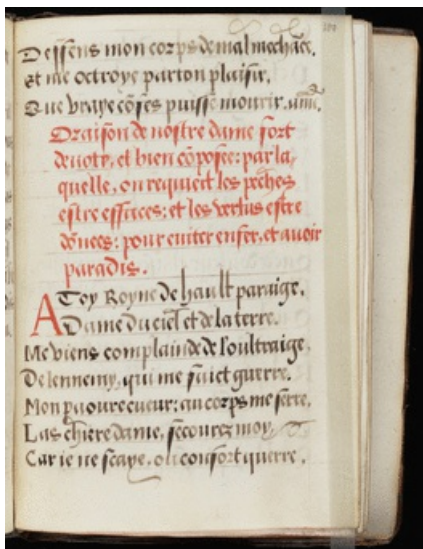 Deffens mon corps de mal meschāce.
Et me octroye par ton plaisir,
Que vraye cōfes puisse mourir. amē.
Oraison de nostre dame fort
devote, et bien cōposee: par la,
quelle, on requiert les pechés
estre effaces: et les vertus estre
dōnees: pour euiter enfer, et auoir
paradis.
A Toy Royne de hault paraige,
Dame du ciel et de la terre.
Me viens complaindre de l'oultraige,
De lennemy, qui me faict guerre.
Mon paoure cueur: au corps me serre,
Las chiere dame, secourez moy,
Car ie ne scaye, ou confort querre.